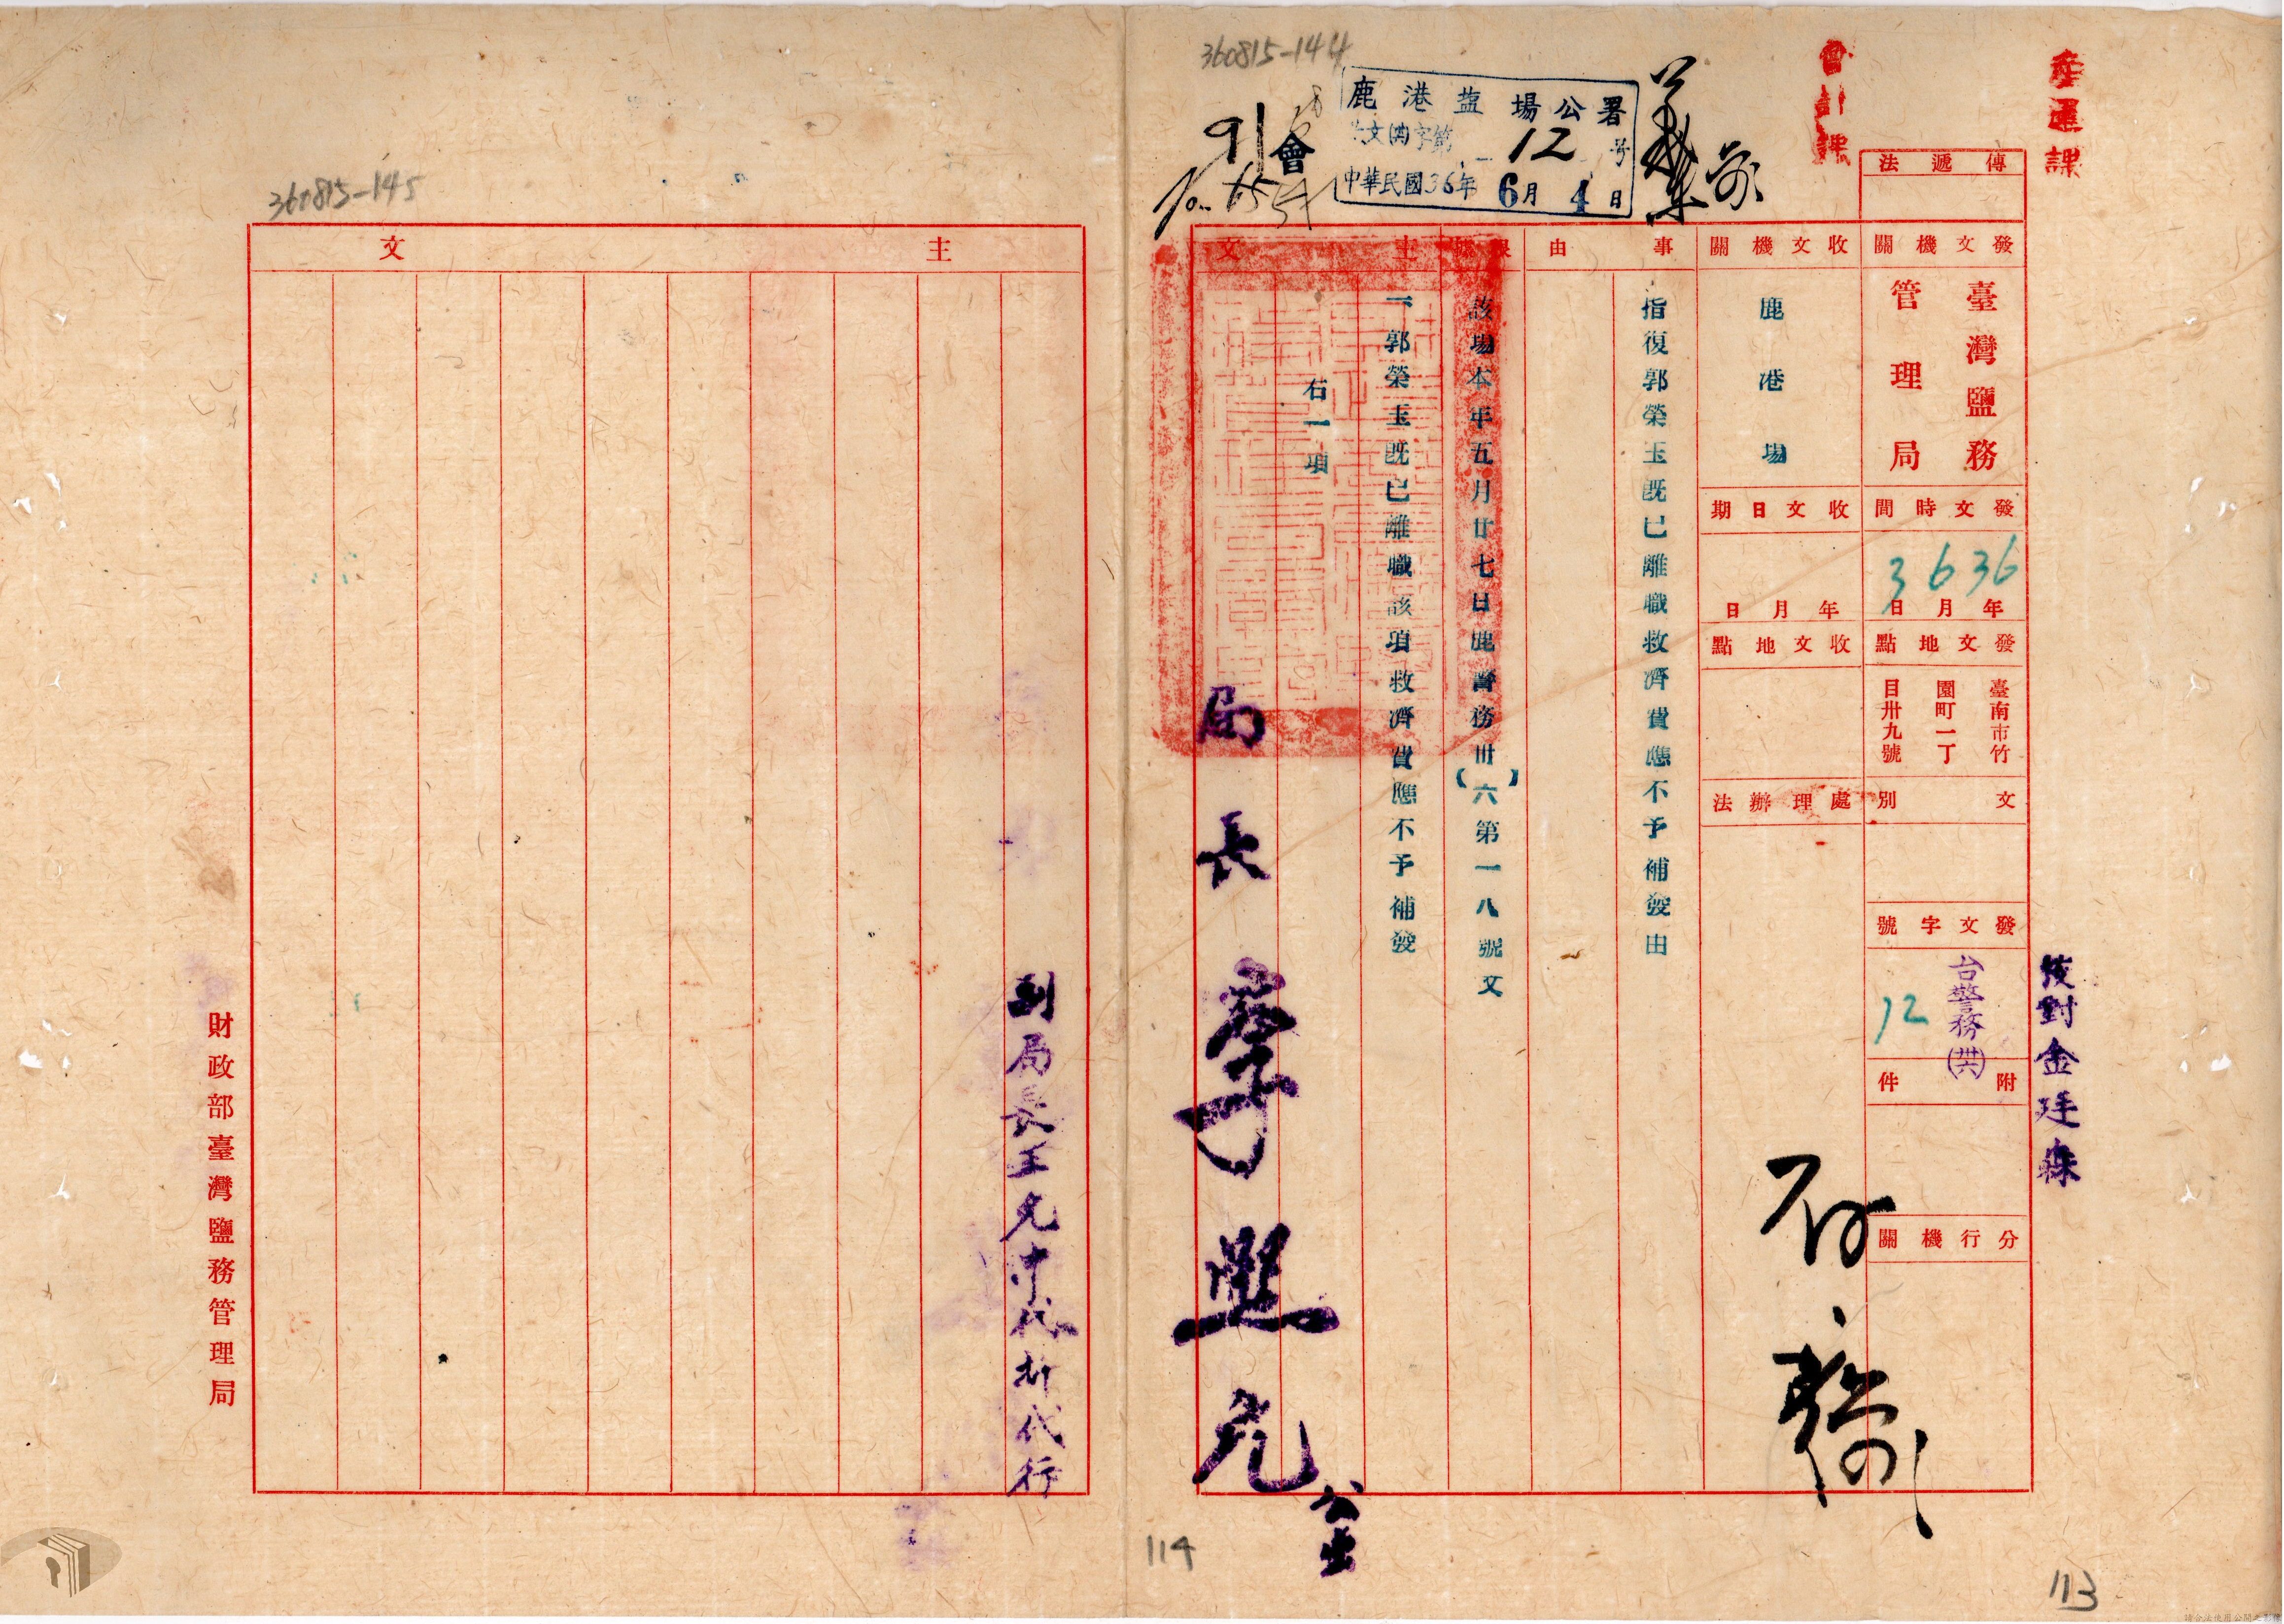 產運課
會計課
360815-144
鹿港盐場公署
文(卅六)字第12号
中華民國36年6月4日
會
91
傳遞法
發文機關
臺灣鹽務
管理局
發文時間
36年6月3日
發文地點
臺南市竹
園町一丁
目卅九號
文別
發文字號
台警務(卅六)
12
附件
分行機關
校對金廷森
收文機關
鹿港場
收文日期
年月日
收文地點
處理辦法
存
事由
指復郭榮玉既已離職救濟費應不予補發由
根據
該場本年五月廿七日鹿警務卅(六)第一八號文
主文
一郭榮玉既已離職該項救濟費應不予補發
右一項
局長
公出
114
113
360815-145
主文
副局長王允中代拆代行
財政部臺灣鹽務管理局